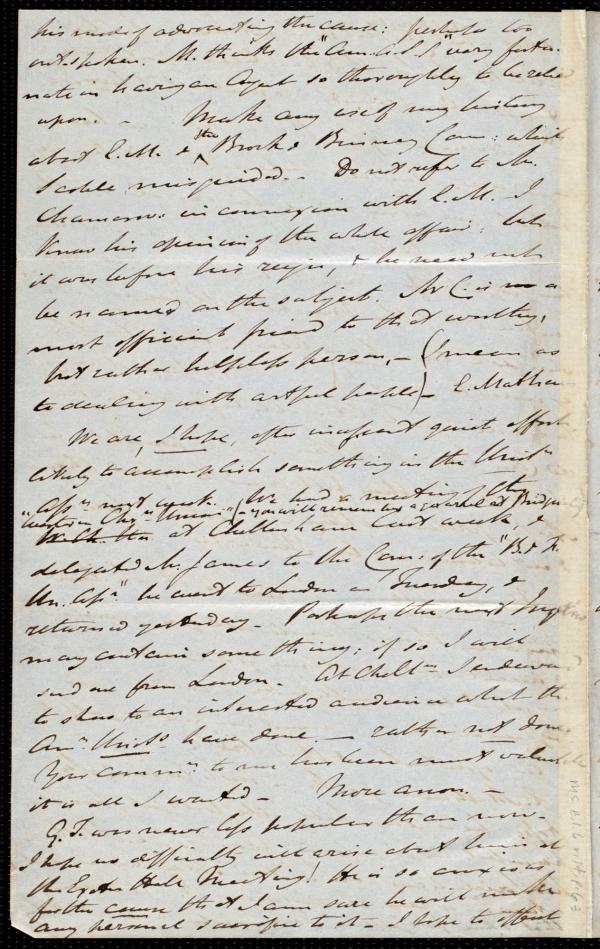 his mode of advocating the cause: perhaps too
outspoken. M. thinks the "Am. A. S. S." very fortu-
nate in having an Agent so thoroughly to be relied
upon. — Make any use of my history
about E. M. & the Brook & Com: which
I miss guided. — Do not refer to Mr.
in connexion with E. M. I
know his opinion of the whole affair: but
it was before his , & he need not
be named on the subject. Mr C. is a
most efficient friend to that worthy,
but rather helpless person, — (I mean as
to dealing with artful people) — E. Mathews
We are, I hope, after quiet efforts
likely to accomplish something in the Unitn
Assn next week. We had a meeting of the
"Western Chrn Union" (you will remember a at Bridge
at Cheltenham last week, &
delegated Mr. James to the Com: of the "B. & F.
Un. Assn" he went to London on Tuesday, &
returned yesterday. Perhaps the next Inqr
may contain something: if so I will
send one from London. At Cheltm I endeavd
to show to an interested audience what the
Amn Unitns have done. — rather not done
Your commn to me has been most valuable
it is all I wanted — More anon. —
G. T. was never less popular than now.
I hope no difficulty will arise about him at
the Exeter Hall Meeting! He is so anxious
for the cause that I am sure he will make
any personal sacrifice to it — I hope to